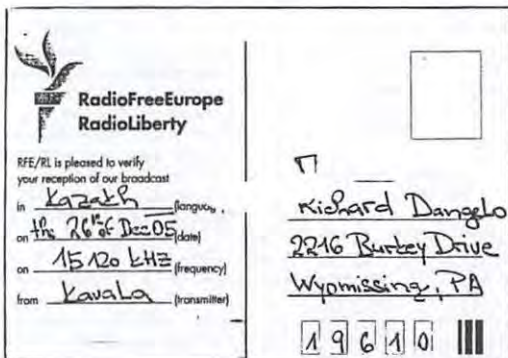 RadioFreeEurope
RadioLiberty
RFE/RL is pleased to verify
your reception of our broadcast
in Kazakh (languag
on the 26th of Dec 05 (date)
on 15120 kHz (frequency)
from Kavala (transmitter)
Richard Dangelo
2216 Burkey Drive
Wyomissing, PA
19610